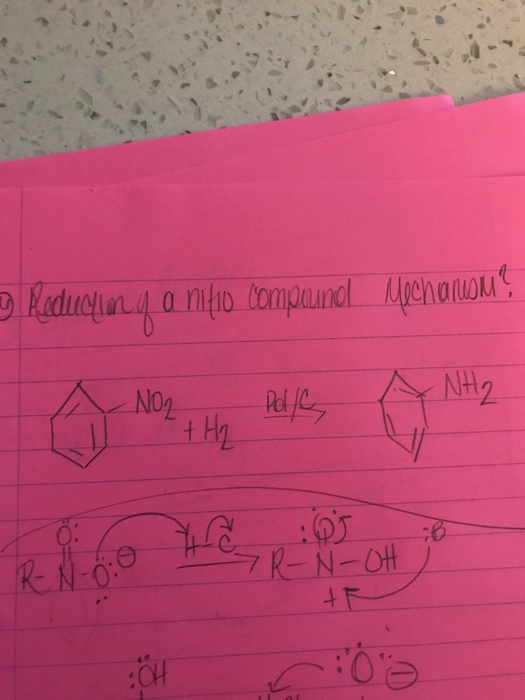 9) Reduction of a nitro compound Mechanism?
NO2 + H2 Pd/C NH2
:O:
R-N-O: ⊖ H-C R-N-OH :B
+
:ÖH :O: ⊖